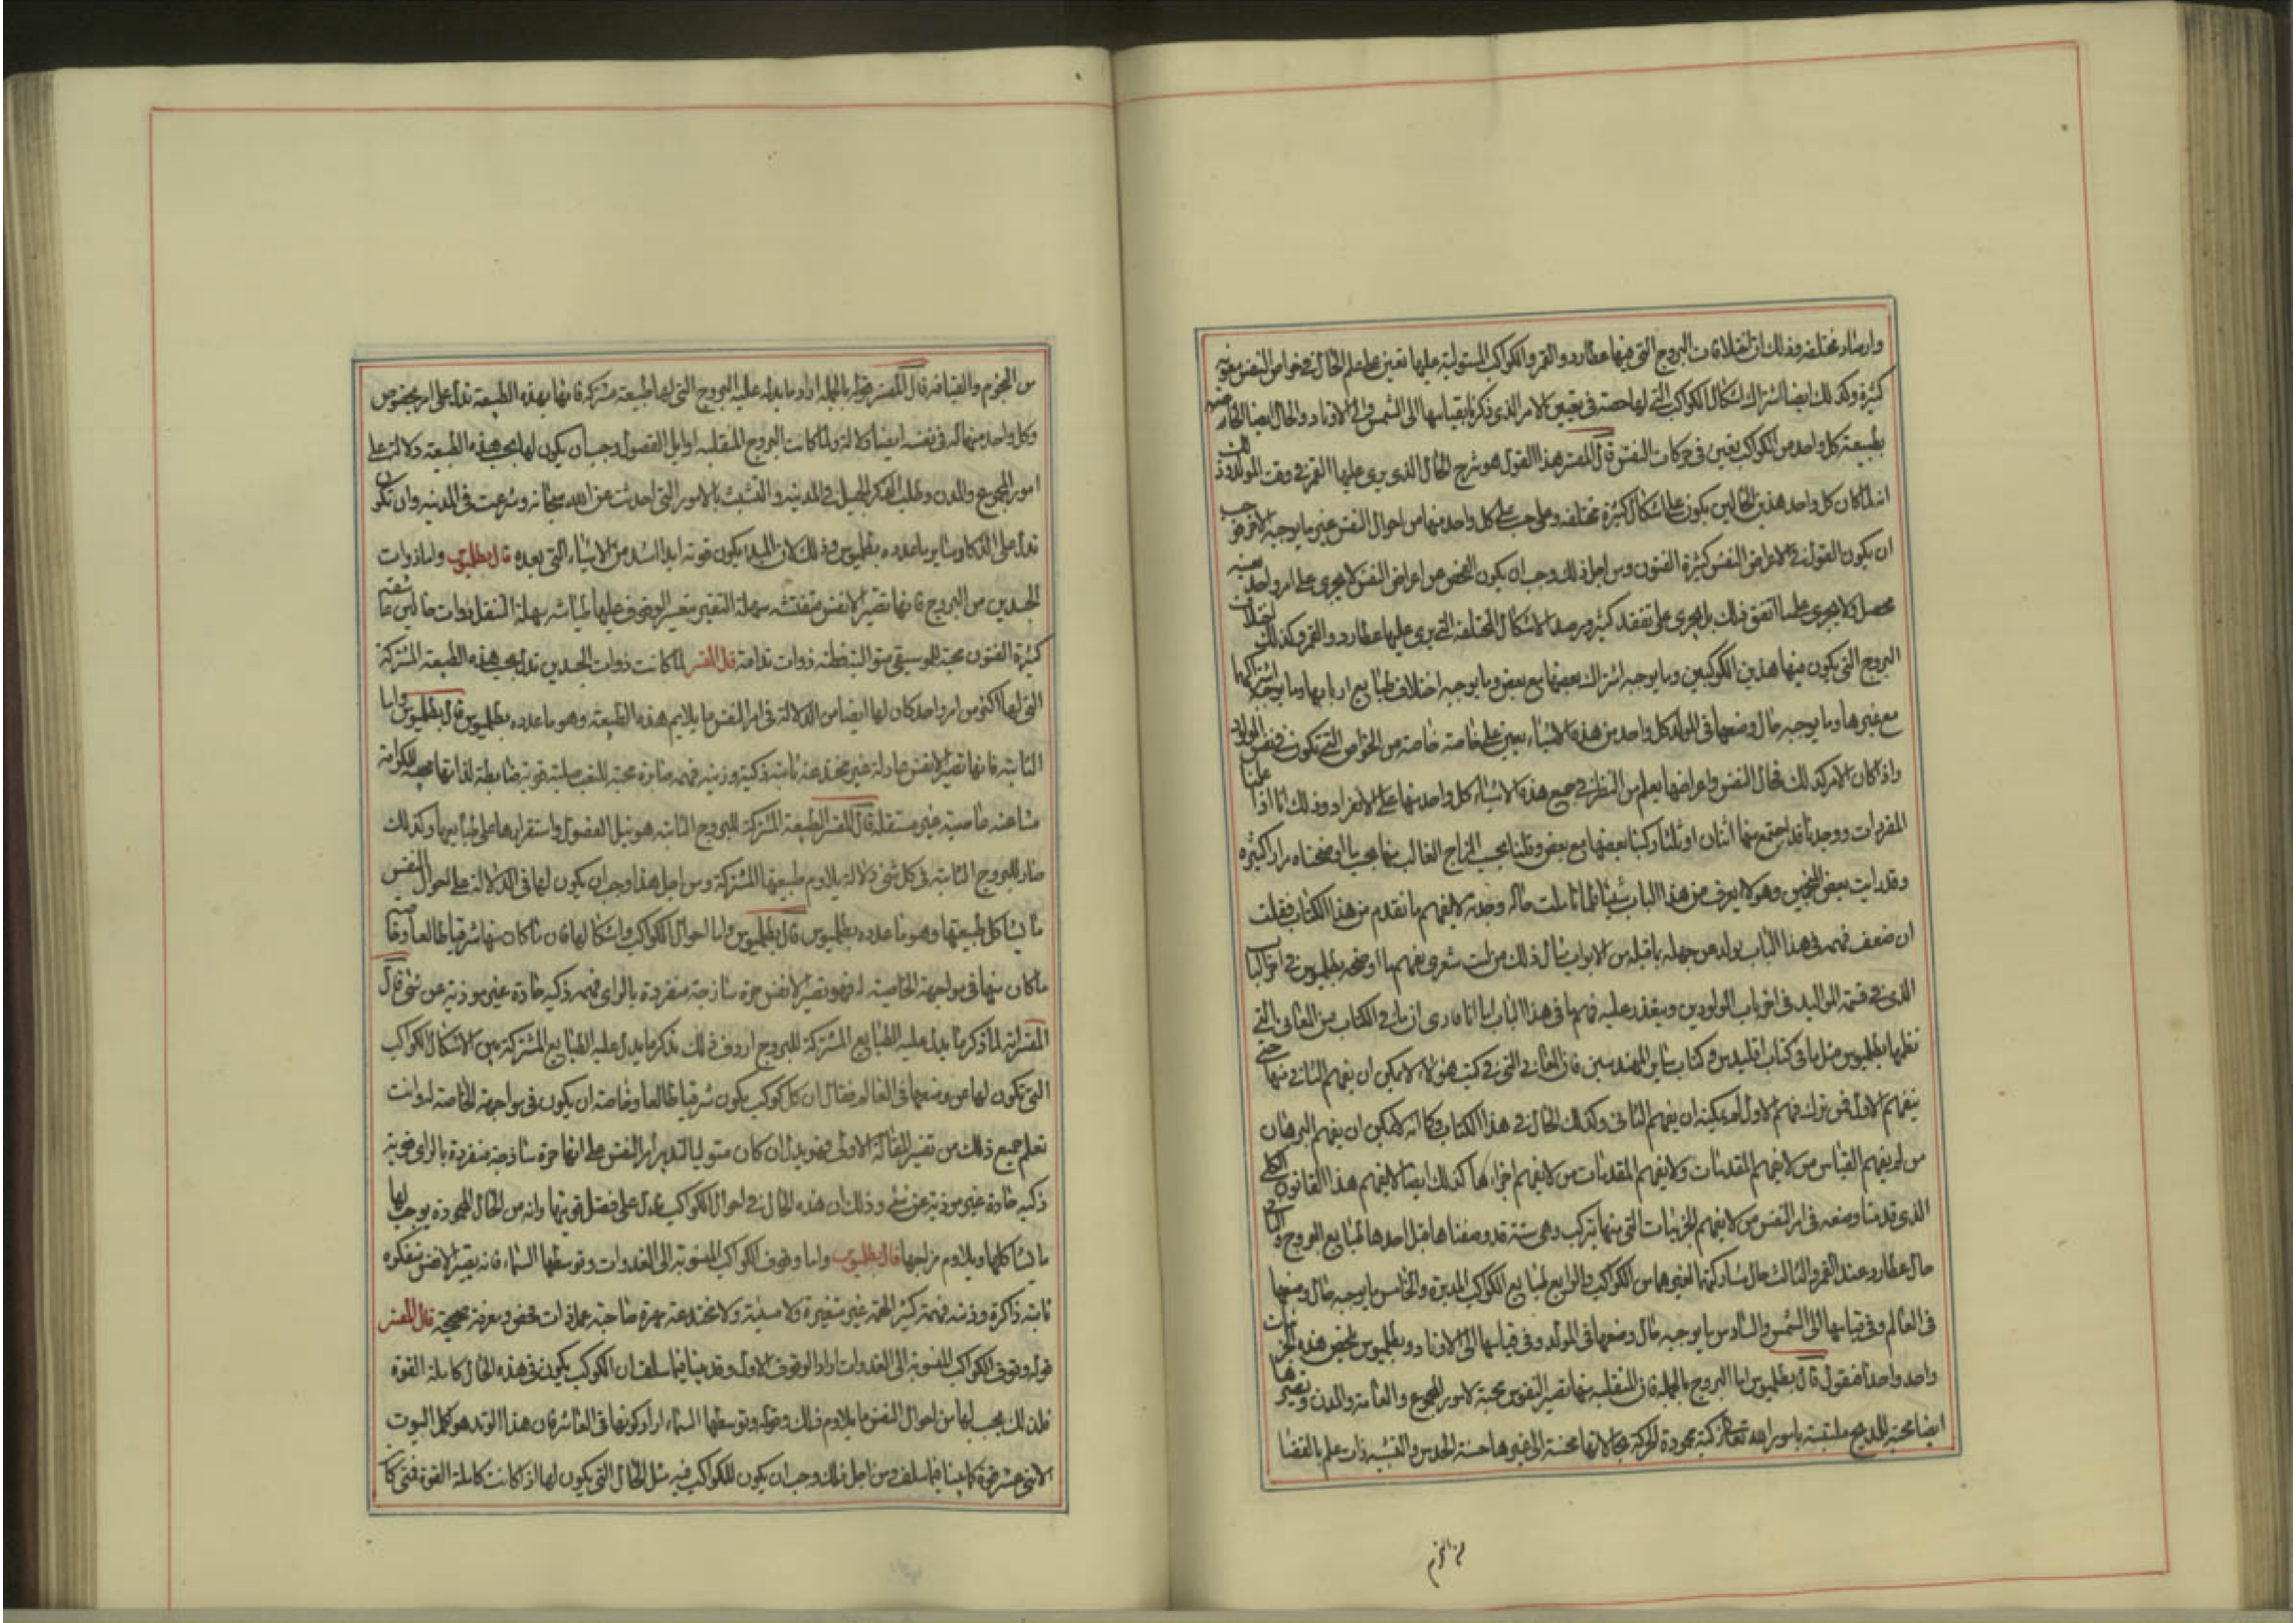 وارصاد مختلفة وذلك ان اختلافات البروج التي فيها عطارد والقمر والكواكب المستولية عليها تعين على علم الحال في خواص النفس معونة
كثيرة وكذلك ايضا اشتراك اشكال الكواكب التي لها حصة في تعيين الامر الذي ذكرنا بقياسها الى الشمس والى الاوتاد والحال ايضا الخاصة
بطبيعة كل واحد من الكواكب يعين في حركات النفس قال المفسر هذا القول هو شرح الحال الذي يرى عليها القمر في وقت المولد وذلك
انه لما كان كل واحد هذين الحالين يكون على اشكال كثيرة مختلفة و كل واحد منها من احوال النفس غير ما يوجبه الاخر وجب
ان يكون القول في الاعراض النفس كثيرة الفنون ومن اجل ذلك وجب ان يكون الفحص عن اعراض النفس لا يجرى على امر واحد بعينه
محصل ولا يجرى على ما اتفق ذلك بل يجرى على تفقد كثير ورصد الاشكال المختلفة التي يرى عليها عطارد والقمر وكذلك اختلاف
البروج التي يكون فيها هذين الكوكبين وما يوجبه اشتراك بعضها مع بعض وما يوجبه اختلاف طبايع اربابها وما يوجبه اشتراكها
مع غيرها وما يوجبه حال وضعها في المولد كل واحد من هذه الاشياء يعين على خاصة خاصة من الخواص التي تكون في نفس المولود
واذا كان الامر كذلك فحال النفس واعراضها يعلم من النظر في جميع هذه الاشياء كل واحد منها على الانفراد وذلك انا اذا علمنا
المفردات ووجدنا قد اجتمع منها اثنان او ثلثة ركبنا بعضها مع بعض وقلنا بحسب المزاج الغالب منها بحسب ما اوضحناه مرارا كثيرة
وقد رايت بعض المنجمين وهو لا يعرف من هذا الباب شيئا فلما تاملت حاله وجدته لا يفهم ما تقدم من هذا الكتاب فقلت
ان ضعف فهمه في هذا الباب يولد من جهله ما قبله من الابواب مثال ذلك من ليت شعري يفهم ما اوضحه بطلميوس في اخر الباب
الذي في قسمة المواليد في اخر باب المولودين ويتعذر عليه فهم ما في هذا الباب اما انا فارى ان ما في الكتاب من المعاني التي
نظمها بطلميوس مثل ما في كتاب اقليدس وكتاب ساير المهندسين فان المعاني التي في كتب هؤلاء لا يمكن ان يفهم الثاني منها حتى
يتفهم الاول فمن ترك فهم الاول لم يمكنه ان يفهم الثاني وكذلك الحال في هذا الكتاب وكما انه لا يمكن ان يفهم البرهان
من لم يفهم القياس من لا يفهم المقدمات ولا يفهم المقدمات من لا يفهم اجزاءها كذلك ايضا لا يفهم هذا القانون الكلي
الذي قدمنا وضعه في امر النفس من لا يفهم الجزئيات التي منها يتركب وهي ستة قد وصفناها قبل احدها طبايع البروج والثاني
حال عطارد عند القمر والثالث حال مشاركتهما لغيرهما من الكواكب والرابع طبايع الكواكب المدبرة والخامس ما يوجبه حال وضعها
في العالم وفي قياسها الى الشمس والسادس ما يوجبه حال وضعها في المولد وفي قياسها الى الاوتاد وبطلميوس يلخص هذه الجزئيات
واحد واحدا فنقول قال بطلميوس اما البروج بالجملة فان المنقلبة منها تصير النفوس محبة لامور الجموع والعامة والمدن وتصيرها
ايضا محبة للمديح ملتبسة بامور الله تعالى زكية محمودة الحركة لانها محسنة الى غيرها حسنة الحدس والتشبيه ذات علم بالقضا
من النجوم والقيافة قال المفسر قوله بالجملة اراد ما يدل عليه البروج التي لها طبيعة مشتركة فانها بهذه الطبيعة تدل على امر مخصوص
وكل واحد منها له في نفسه ايضا دلالة ولما كانت البروج المنقلبة اوايل الفصول وجب ان يكون لها بحسب هذه الطبيعة دلالة على
امور الجموع والمدن وطلب الذكر الجميل في المدينة والتشبث بالامور التي احدثت عن الله سبحانه وشرعت في المدينة وان تكون
تدل على الذكا وساير ما عدده بطلميوس وذلك لان المبدا يكون قوته ابدا اشد من الاشياء التي بعده قال بطلميوس واما ذوات
الجسدين من البروج فانها تصير الانفس متفننة سهلة التغير يعسر الوقوف عليها طياشة سهلة التنقل ذوات حالين عاشقة
كثيرة الفنون محبة للموسيقى متوانية فطنة ذوات ندامة قال المفسر لما كانت ذوات الجسدين تدل بحسب هذه الطبيعة المشتركة
التي لها اكثر من امر واحد كان لها ايضا من الدلالة في امر النفس ما يلايم هذه الطبيعة وهو ما عدده بطلميوس قال بطلميوس واما
الثابتة فانها تصير الانفس عادلة غير مخدعة ثابتة ذكية رزينة فهمة صابرة محبة للتعب صلبة قوية ضابطة لذاتها محبة للكرامة
مشاغبة عاصية غير مستقلة قال المفسر الطبيعة المشتركة للبروج الثابتة هو نيل الفصول واستقرارها على طبايعها وكذلك
صار للبروج الثابتة في كل شي دلالة يلاوم طبيعتها المشتركة ومن اجل هذا وجب ان يكون لها في الدلالة على احوال النفس
ما يشاكل طبيعتها وهو ما عدده بطلميوس قال بطلميوس واما احوال الكواكب واشكالها فان ما كان منها شرقيا طالعا وخاصة
ما كان منها في مواجهة الخاصية له فهو تصير الانفس حرة ساذجة منفردة بالراي فهمة ذكية حادة غير موذية عن شي قال
المفسر انه لما ذكر ما يدل عليه الطبايع المشتركة للبروج اردف ذلك بذكر ما يدل عليه الطبايع المشتركة بين الاشكال الكواكب
التي تكون لها عن وضعها في العالم فقال ان كل كوكب يكون شرقيا طالعا وخاصة ان يكون في مواجهة الخاصة له وانت
تعلم جميع ذلك من تفسير المقالة الاولى فهو يدل ان كان متوليا لتدبير امر النفس على انها حرة ساذجة منفردة بالراي قوية
ذكية حادة غير موذية عن شي وذلك ان هذه الحال في احوال الكواكب يدل على فضل قوتها وانه من الحال المحمودة يوجب لها
ما يشاكلها ويلاوم مزاجها قال بطلميوس واما وقوف الكواكب المنسوبة الى الغدوات وتوسطها السماء فانه يصير الانفس متفكرة
ثابتة ذاكرة رزينة فهمة كبيرة الهمة غير متغيرة ولا مسيئة ولا مخدعة مهرة صاحبة عمل ذات فحص ومعرفة صحيحة قال المفسر
قوله وقوف الكواكب المنسوبة الى الغدوات اراد الوقوف الاول وقد بينا فيما سلف ان الكوكب يكون في هذه الحال كاملة القوة
فلذلك يجب لها من احوال النفس ما يلاوم ذلك وقوله وتوسطها السماء اراد كونها في العاشر فان هذا الوتد هو اكمل البيوت
الاثني عشر قوة كما بينا فيما سلف ومن اجل ذلك وجب ان يكون للكواكب فيه مثل الحال التي يكون لها اذا كانت كاملة القوة فمتى كان